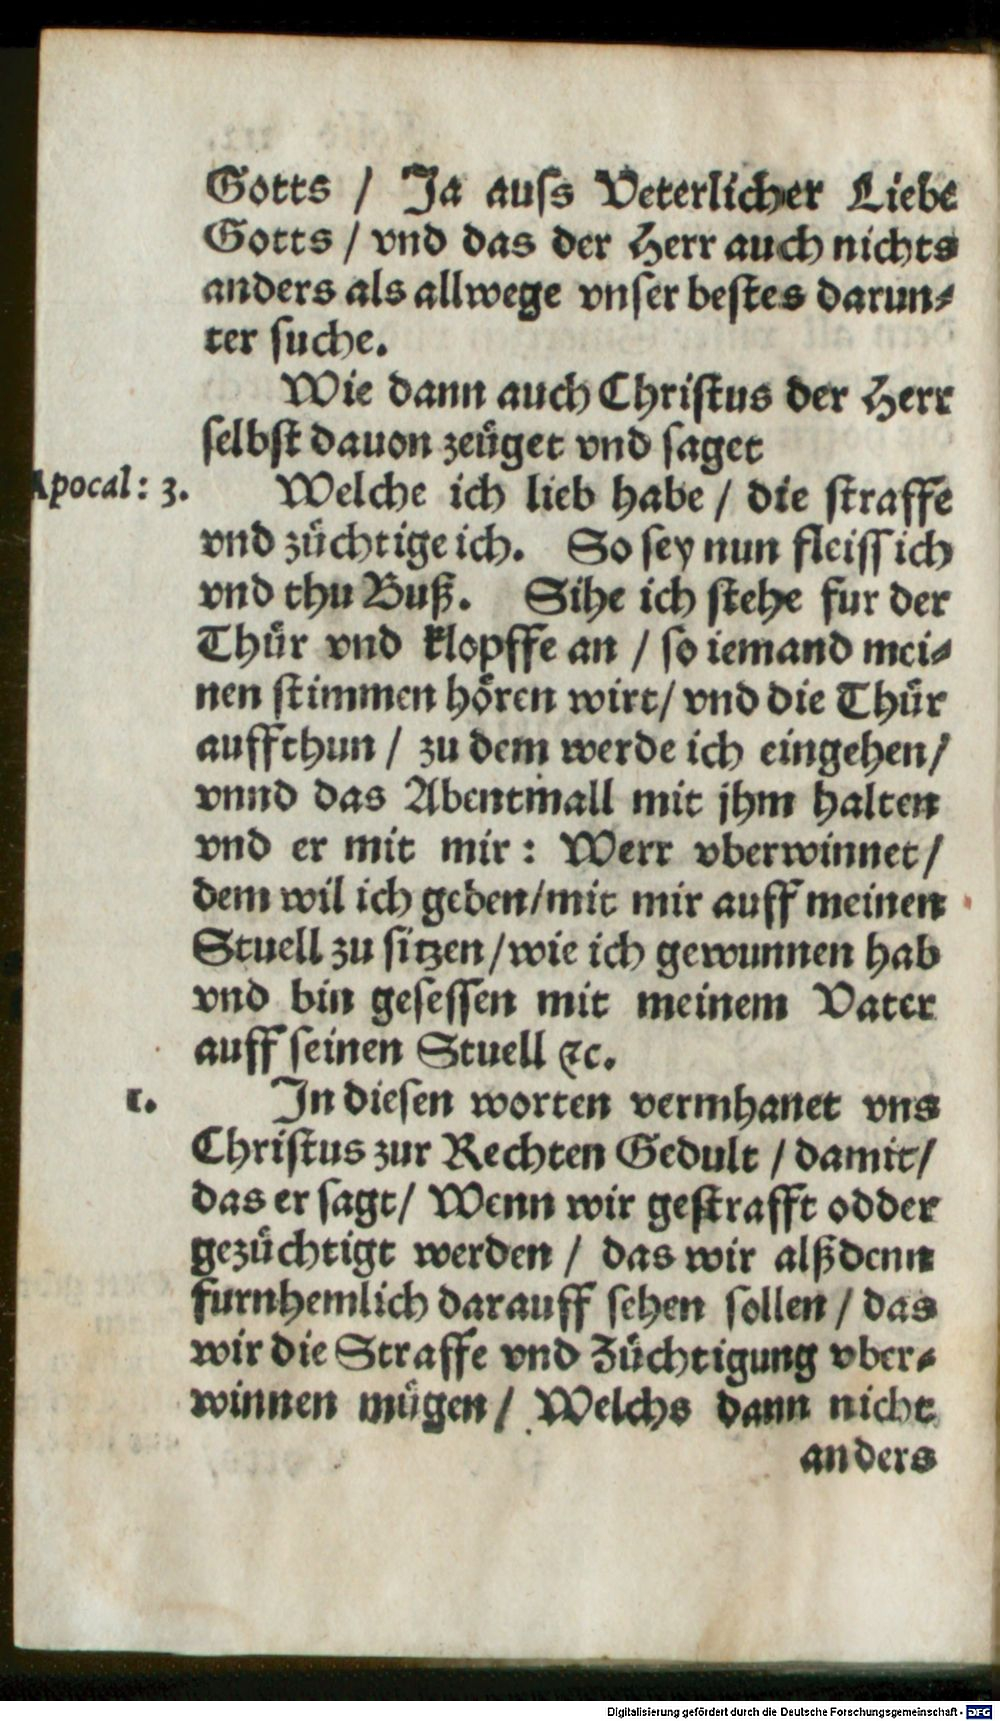 Gotts / Ja auss Veterlicher Liebe
Gotts / vnd das der Herr auch nichts
anders als allwege vnser bestes darun⸗
ter suche.
Wie dann auch Christus der Herr
selbst dauon zeüget vnd saget
Apocal: 3.
Welche ich lieb habe / die straffe
vnd züchtige ich. So sey nun fleiss ich
vnd thu Buß. Sihe ich stehe fur der
Thür vnd klopffe an / so iemand mei⸗
nen stimmen hören wirt / vnd die Thür
auffthun / zu dem werde ich eingehen /
vnnd das Abentmall mit jhm halten
vnd er mit mir : Werr vberwinnet /
dem wil ich geben / mit mir auff meinen
Stuell zu sitzen / wie ich gewunnen hab
vnd bin gesessen mit meinem Vater
auff seinen Stuell ꝛc.
1.
In diesen worten vermhanet vns
Christus zur Rechten Gedult / damit /
das er sagt / Wenn wir gestrafft odder
gezüchtigt werden / das wir alßdenn
furnhemlich darauff sehen sollen / das
wir die Straffe vnd Züchtigung vber⸗
winnen mügen / Welchs dann nicht
anders
Digitalisierung gefördert durch die Deutsche Forschungsgemeinschaft - DFG